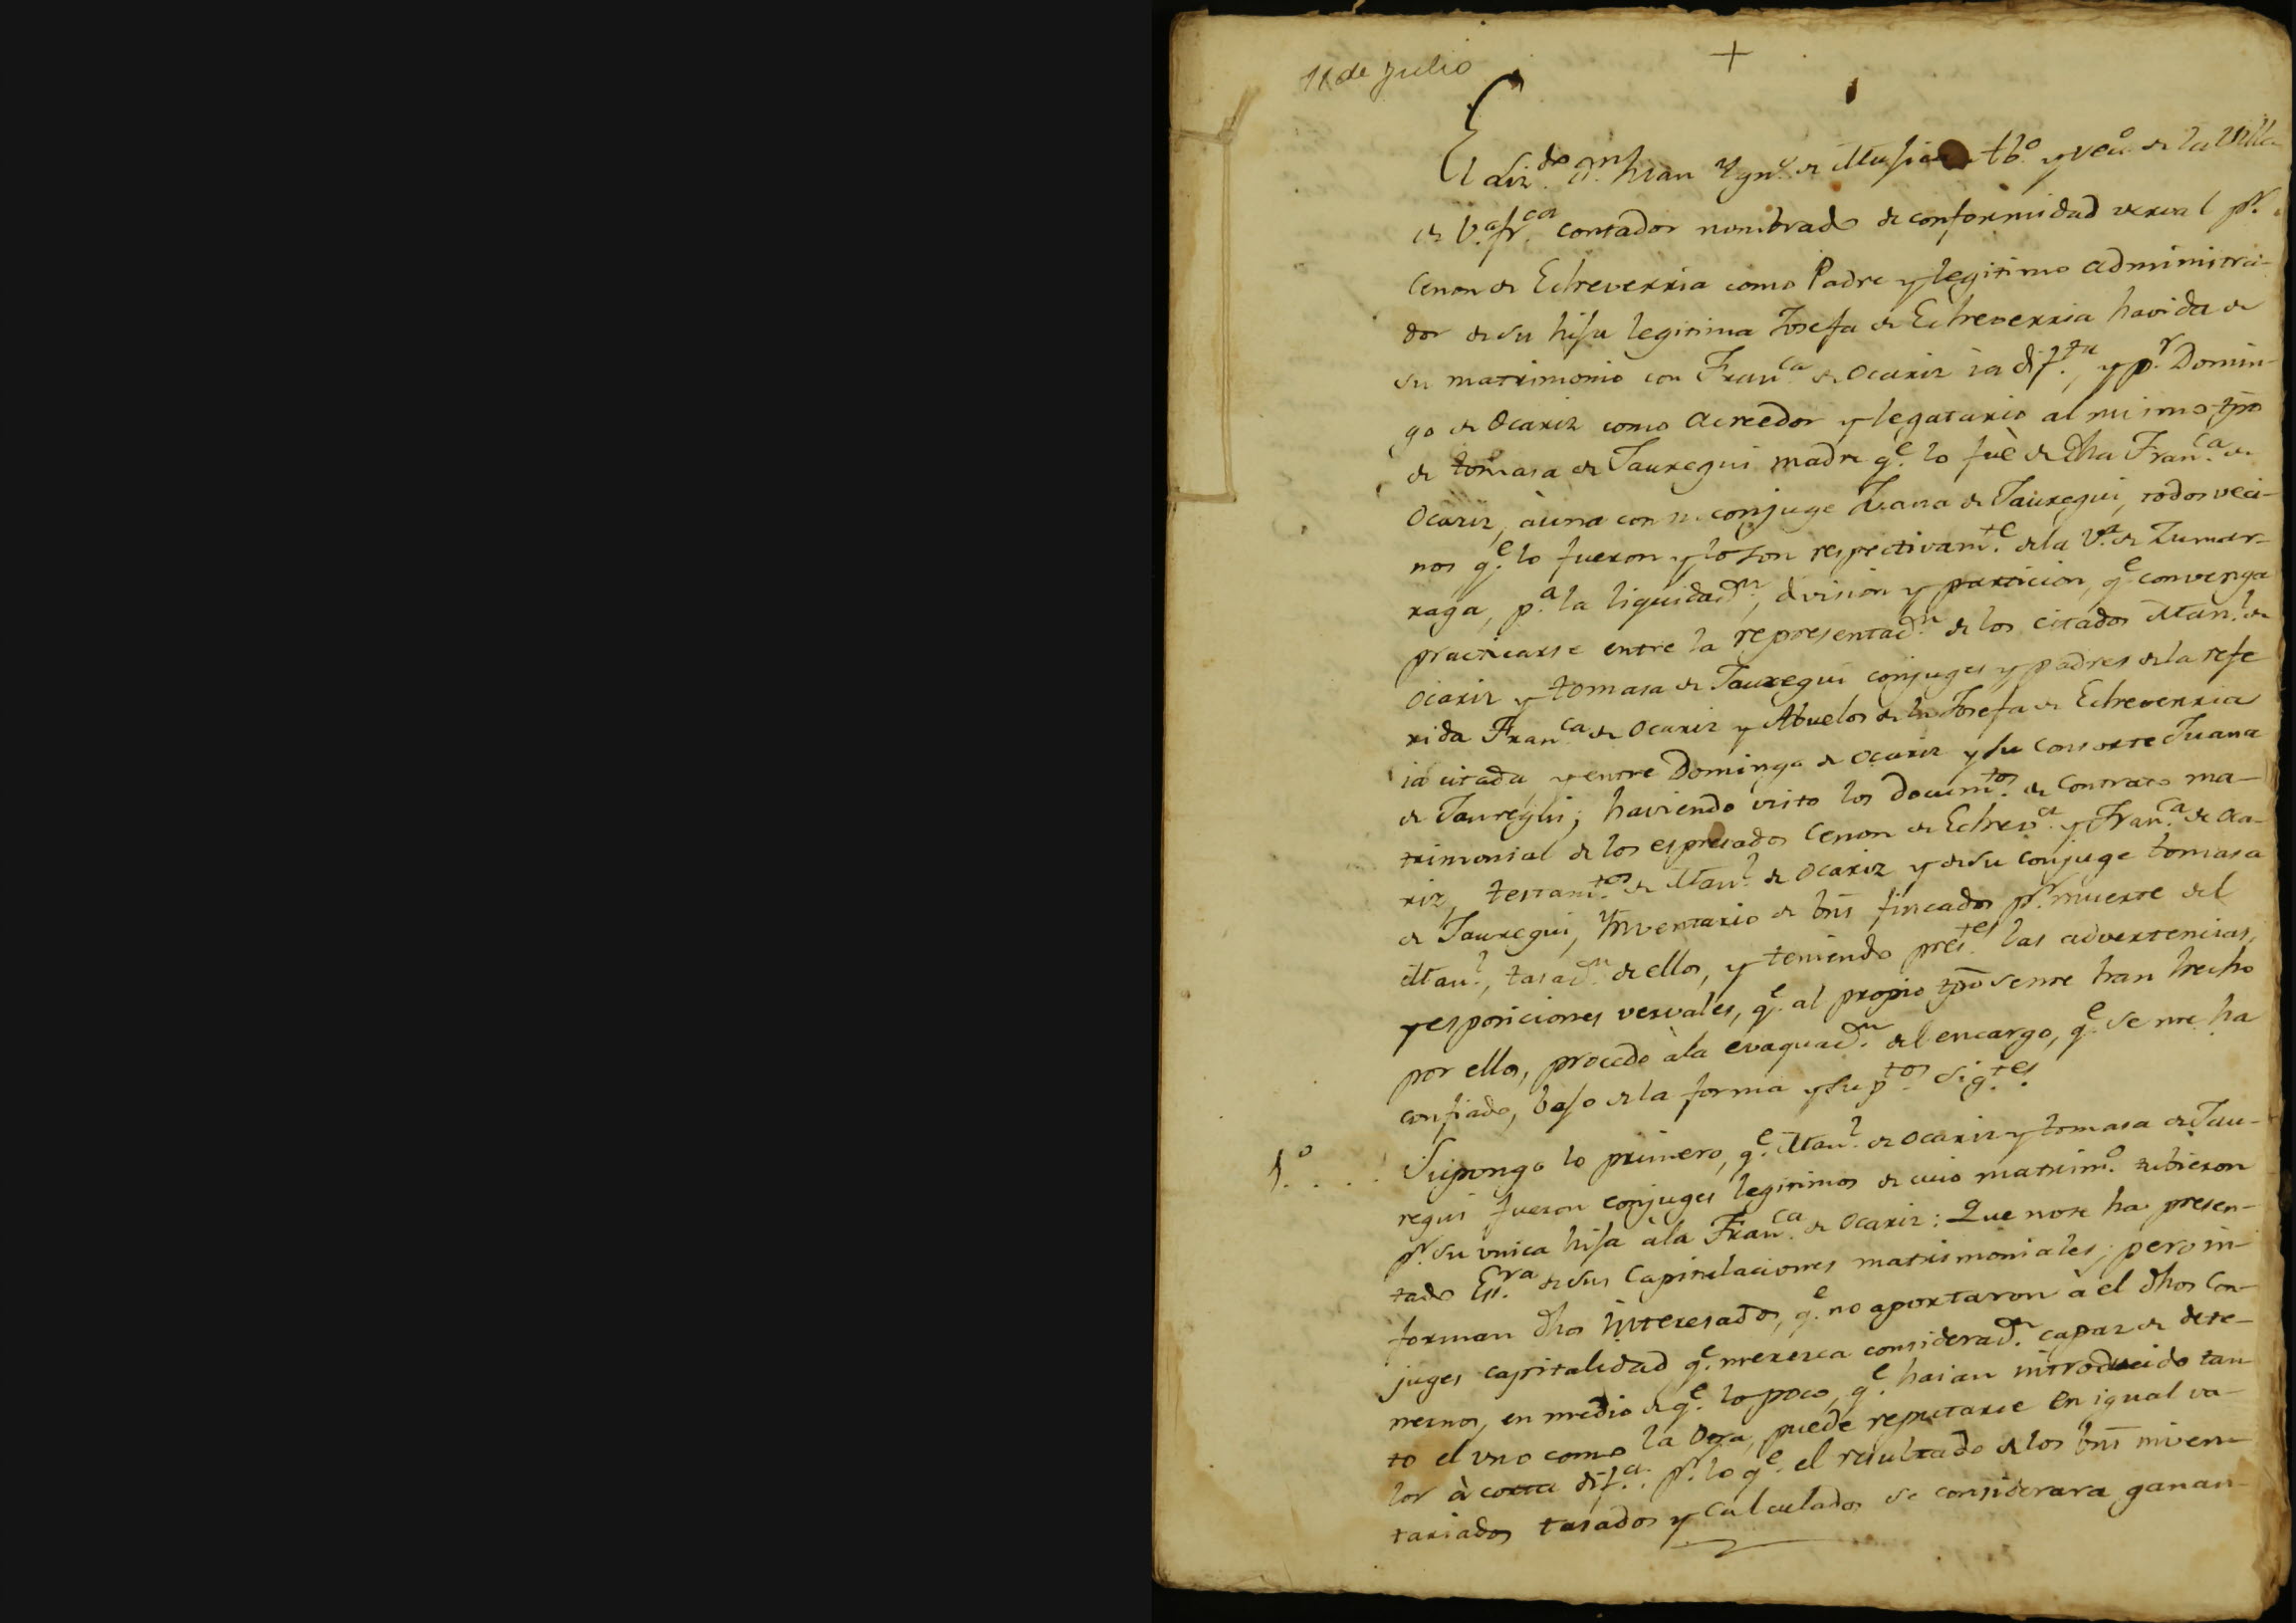 11 de Julio
+
El Liz.do D.n Juan Ygn.o de Musica Ab.o y vec.o de la Villa
de V.a fr.ca contador nombrado de conformidad verval p.r
Cenon de Echeverria como Padre y legitimo administra-
dor de su hija legitima Josefa de Echeverria havida de
su matrimonio con Fran.ca de Ocariz ia dif.ta, y p.r Domin-
go de Ocariz como acreedor y legatario al mismo tpo
de tomasa de Jauregui madre q.e lo fuè de dha Fran.ca de
Ocariz, àuna con su conjuge Juana de Jauregui, todos veci-
nos q.e lo fueron y lo son respectivam.te de la V.a de Zumar-
raga, p.a la liquidac.n, division y particion, q.e convenga
practicarse entre la representac.n de los citados Man.l de
Ocariz y tomasa de Jauregui conjuges y padres de la refe
rida Fran.ca de Ocariz y Abuelos de la Josefa de Echeverria
ia citada, y entre Domingo de Ocariz y su consorte Juana
de Jauregui; haviendo visto los docum.tos de Contrato ma-
trimonial de los espresados Cenon de Echev.a y Fran.ca de Oca-
riz, testam.tos de Man.l de Ocariz y de su conjuge tomasa
de Jauregui, Ynventario de bns fincados p.r muerte del
Man.l, tasac.n de ellos, y teniendo pres.tes las advertencias,
y esposiciones vervales, q.e al propio tpo se me han hecho
por ellos, procedo àla evaquac.n del encargo, q.e se me ha
confiado, bajo de la forma y sup.tos sig.tes
1.o . . . Supongo lo primero, q.e Man.l de Ocariz y tomasa de Jau-
regui fueron conjuges legitimos de cuio matrim.o tubieron
p.r su unica hija àla Fran.ca de Ocariz: Que nose ha presen-
tado Es.ra de sus Capitulaciones matrimoniales, pero in-
forman dhos Ynteresados, q.e no aportaron à el dhos Con-
juges capitalidad q.e merezca considerac.n capaz de dete-
nernos, en medio de q.e lo poco, q.e haian introducido tan
to el uno como la otra, puede reputarse en igual va-
lor à corta dif.a: p.r lo q.e el resultado de los bns inven-
tariados tasados y calculados se considerara ganan-